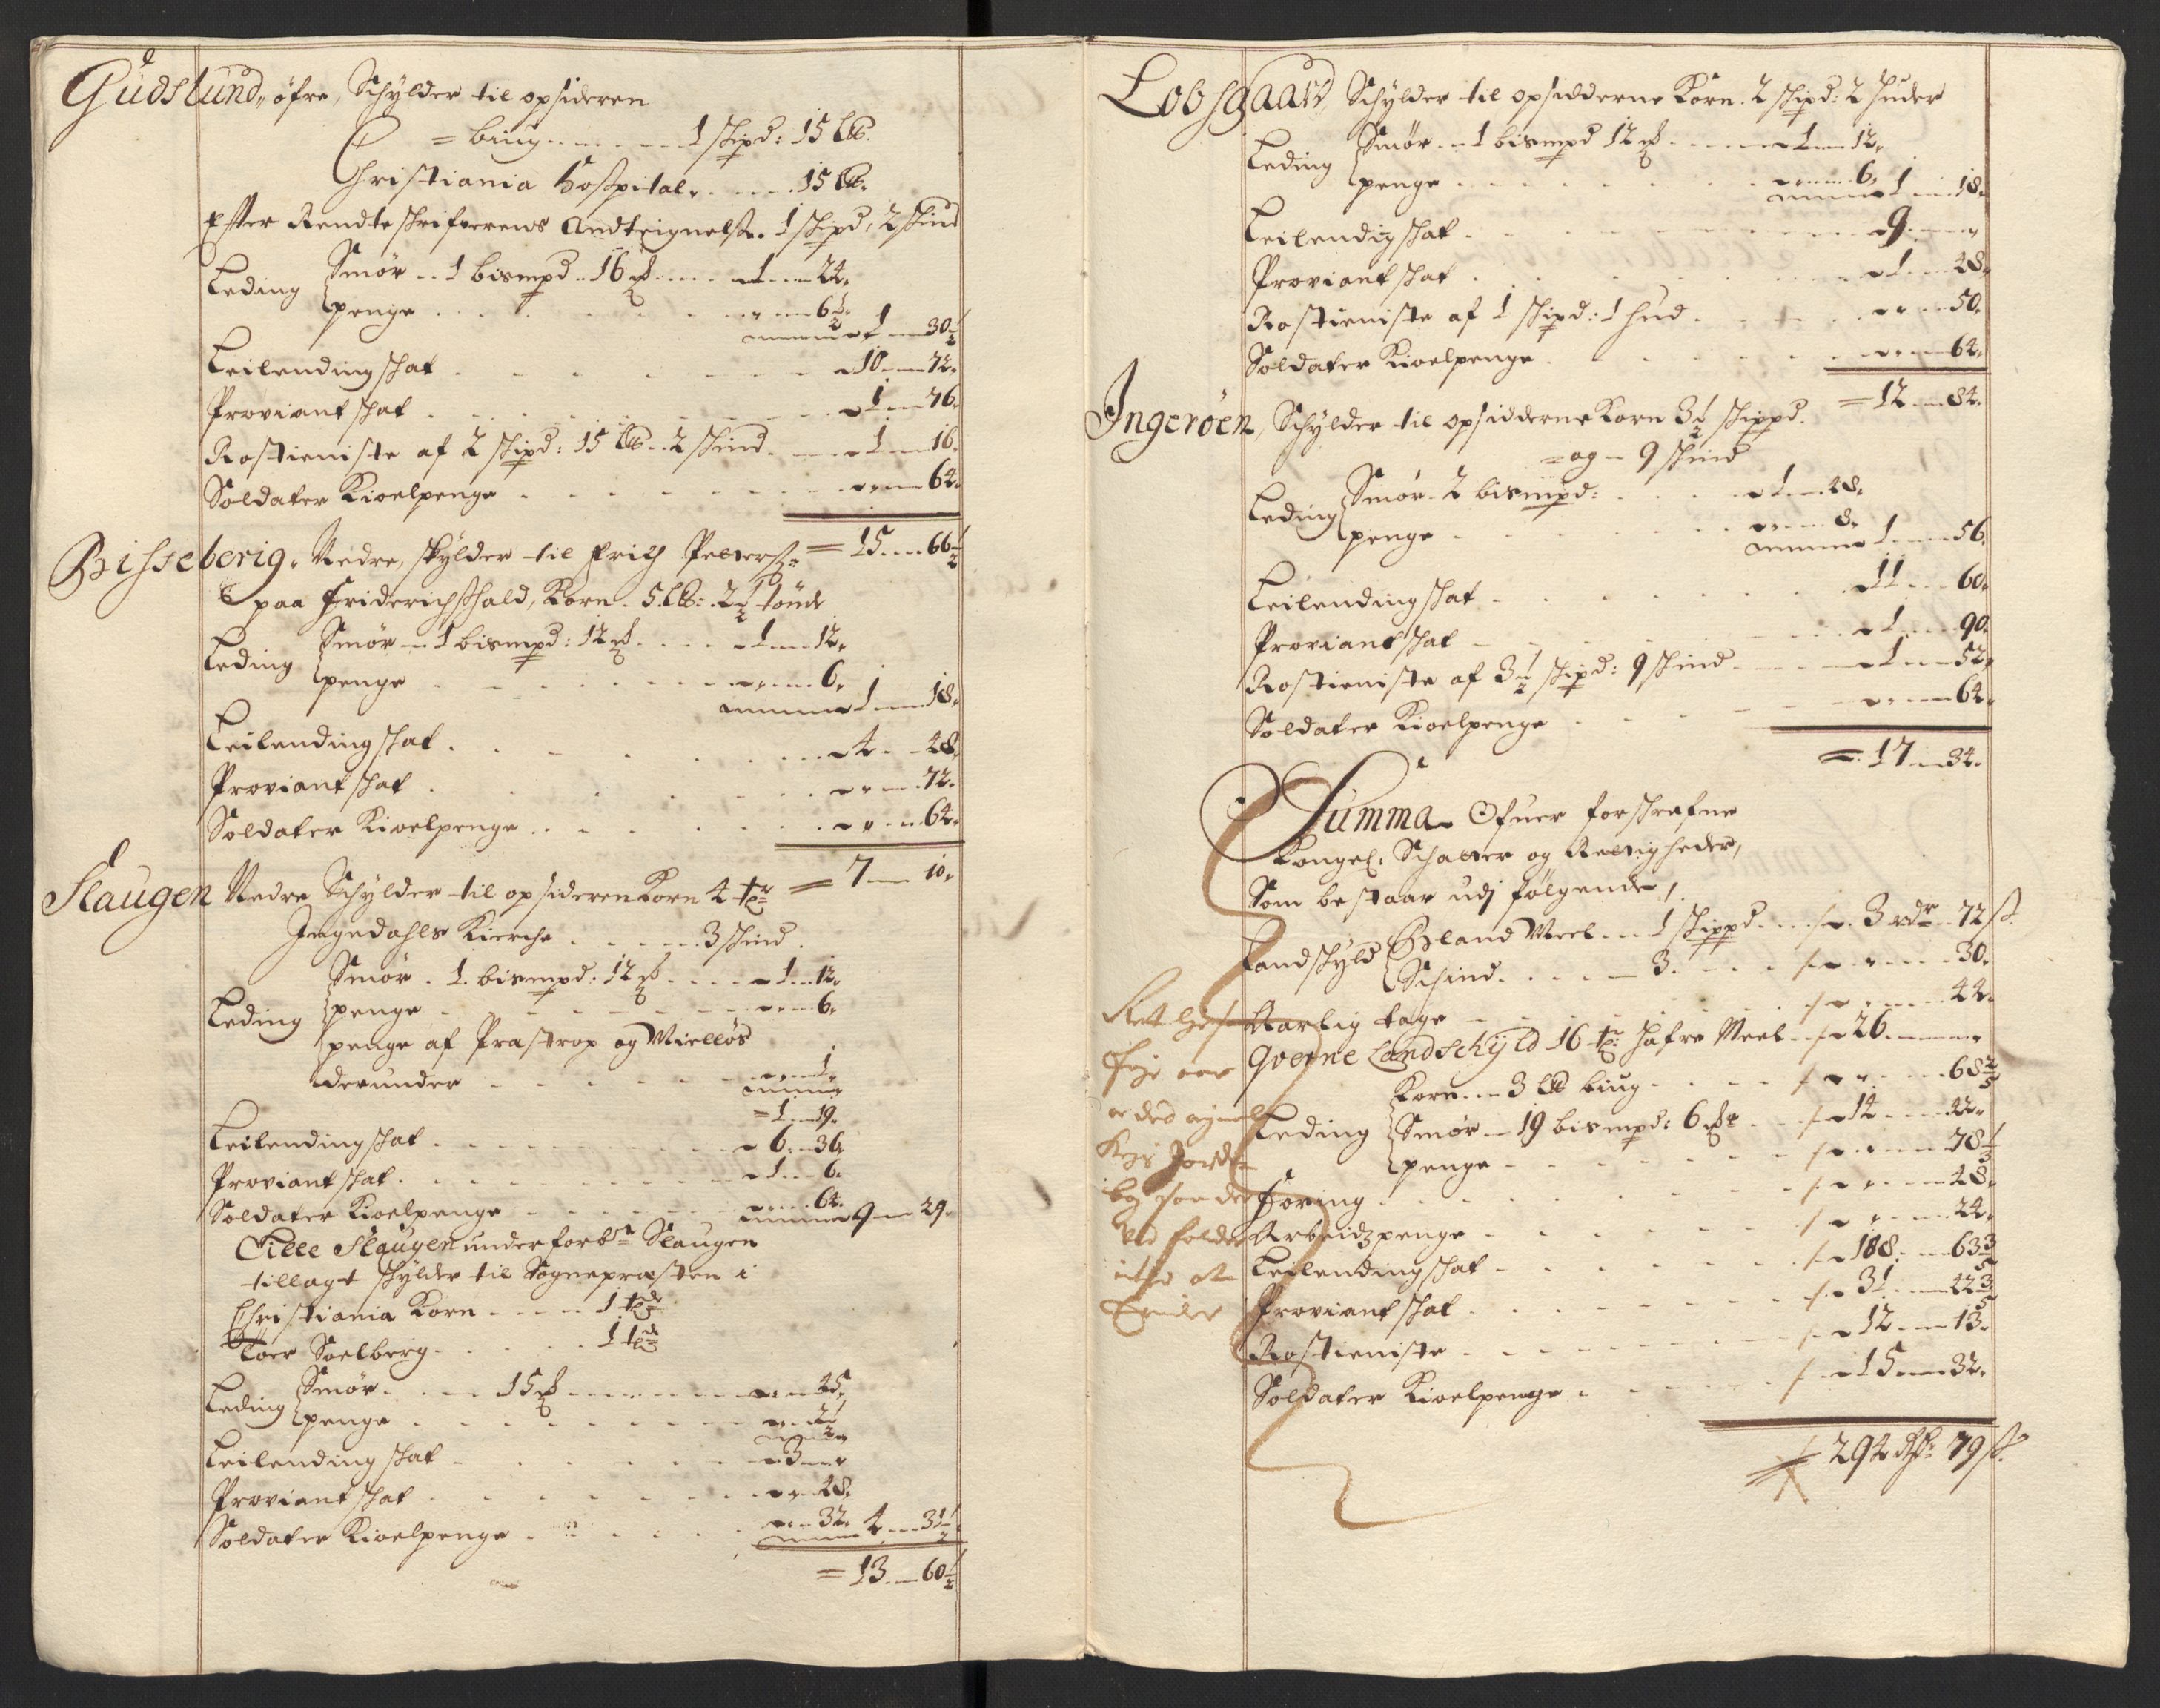 Gudslund, öfre, Schylder til opsideren
= biug . . . . 1 schipd: 15 Lb.
Christiania Hospital, . . . . 15 Lb.
Efter Rendteschrifverens Andteignelse. 1 schipd, 2 schind
Leding { Smör . . 1 bismpd . . 16 mk . . . . 1 — 24.
penge . . . . . „ — 6½
1 — 30½
Leilending schat . . . . . . 10 — 72.
Proviant schat . . . . . . 1 — 76.
Rostieniste af 2 schipd: 15 Lb. . 2 schind. . . 1 — 16.
Soldater Kioelpenge . . . . . . „ — 64.
= 15 — 66½
Bisseberig, Nedre, skylder til Erich Pederss:
paa Friderichshald, Korn . 5 Lb: 2½ tönde
Leding { Smör — 1 bismpd: 12 mk . . . . 1 — 12.
penge . . . . . . „ — 6.
1 — 18.
Leilending schat . . . . . . 4 — 48.
Proviant schat . . . . . . „ — 72.
Soldater Kioelpenge . . . . . . „ — 64.
= 7 — 10.
Slaugen Nedre Schylder til opsideren Korn 4 tr
Ingedahls Kierche . . . . . 3 schind.
Leding { Smör . 1 . bismpd: 12 mk . . . . 1 — 12.
penge . . . . . . „ — 6.
penge af Prastrop og Mielløs
derunder . . . . . . „ — 1.
= 1 — 19.
Leilending schat . . . . . . 6 — 36.
Proviant schat . . . . . . 1 — 6.
Soldater Kioelpenge . . . . . „ — 64.
9 — 29.
Lille Slaugen under forbte Slaugen
tillagt skylder til Sognepræsten i
Christiania Korn . . . . 1 tde
Toer Soelberg . . . . . 1 tde
Leding { Smör . . . 15 mk . . . . . „ — 45.
penge . . . . . . „ — 2½
Leilending schat . . . . . . 3 — „
Proviant schat . . . . . . „ — 48.
Soldater Kioelpenge . . . . . „ — 32. 4 — 31½
= 13 — 60½
Lobsgaard Schylder til opsidderne Korn . 2 schipd: 2 huder
Leding { Smör . . 1 bismpd 12 mk . . . . 1 — 12.
penge . . . . . . „ — 6.
1 — 18.
Leilendig schat . . . . . . 9 — „
Proviant schat . . . . . . 1 — 48.
Rostieniste af 1 schipd: 1 hud . . . . „ — 50.
Soldater Kioelpenge . . . . . „ — 64.
= 12 — 84.
Ingerøen, Schylder til opsidderne Korn 3½ schippd.
= og — 9 schind
Leding { Smör . 2 bismpd: . . . . 1 — 48.
penge . . . . . . „ — 8.
1 — 56.
Leilending schat . . . . . . 11 — 60.
Proviant schat . . . . . . 1 — 90.
Rostieniste af 3½ schipd: 9 schind . . . . 1 — 52.
Soldater Kioelpenge . . . . . „ — 64.
= 17 — 34.
Summa Ofuer forschrefne
Kongel: Schatter og Rettigheder,
Som bestaar udj følgende,
Landschyld { Bland Meel . . . 1 schippd . . . 3 rdr — 72 s.
Schind . . . . 3 . . . . „ — 30.
Aarlig tage . . . . . . „ — 44.
Qverne Landschyld 16 tr: Hafre Meel . . 26 — „
Leding { Korn . . . 3 Lb biug . . . . „ — 68⅖
Smör — 19 bismpd: 6 mk . . . 14 — 42.
penge . . . . . . „ — 78⅓
Foring . . . . . . „ — 48.
Arbeidzpenge . . . . . . „ — 24.
Leilending schat . . . . . . 188 — 63⅗
Proviant schat . . . . . . 31 — 42⅗
Rostieniste . . . . . . 12 — 13.
Soldater Kioelpenge . . . . . 15 — 32.
294 Rdr: 79 s.